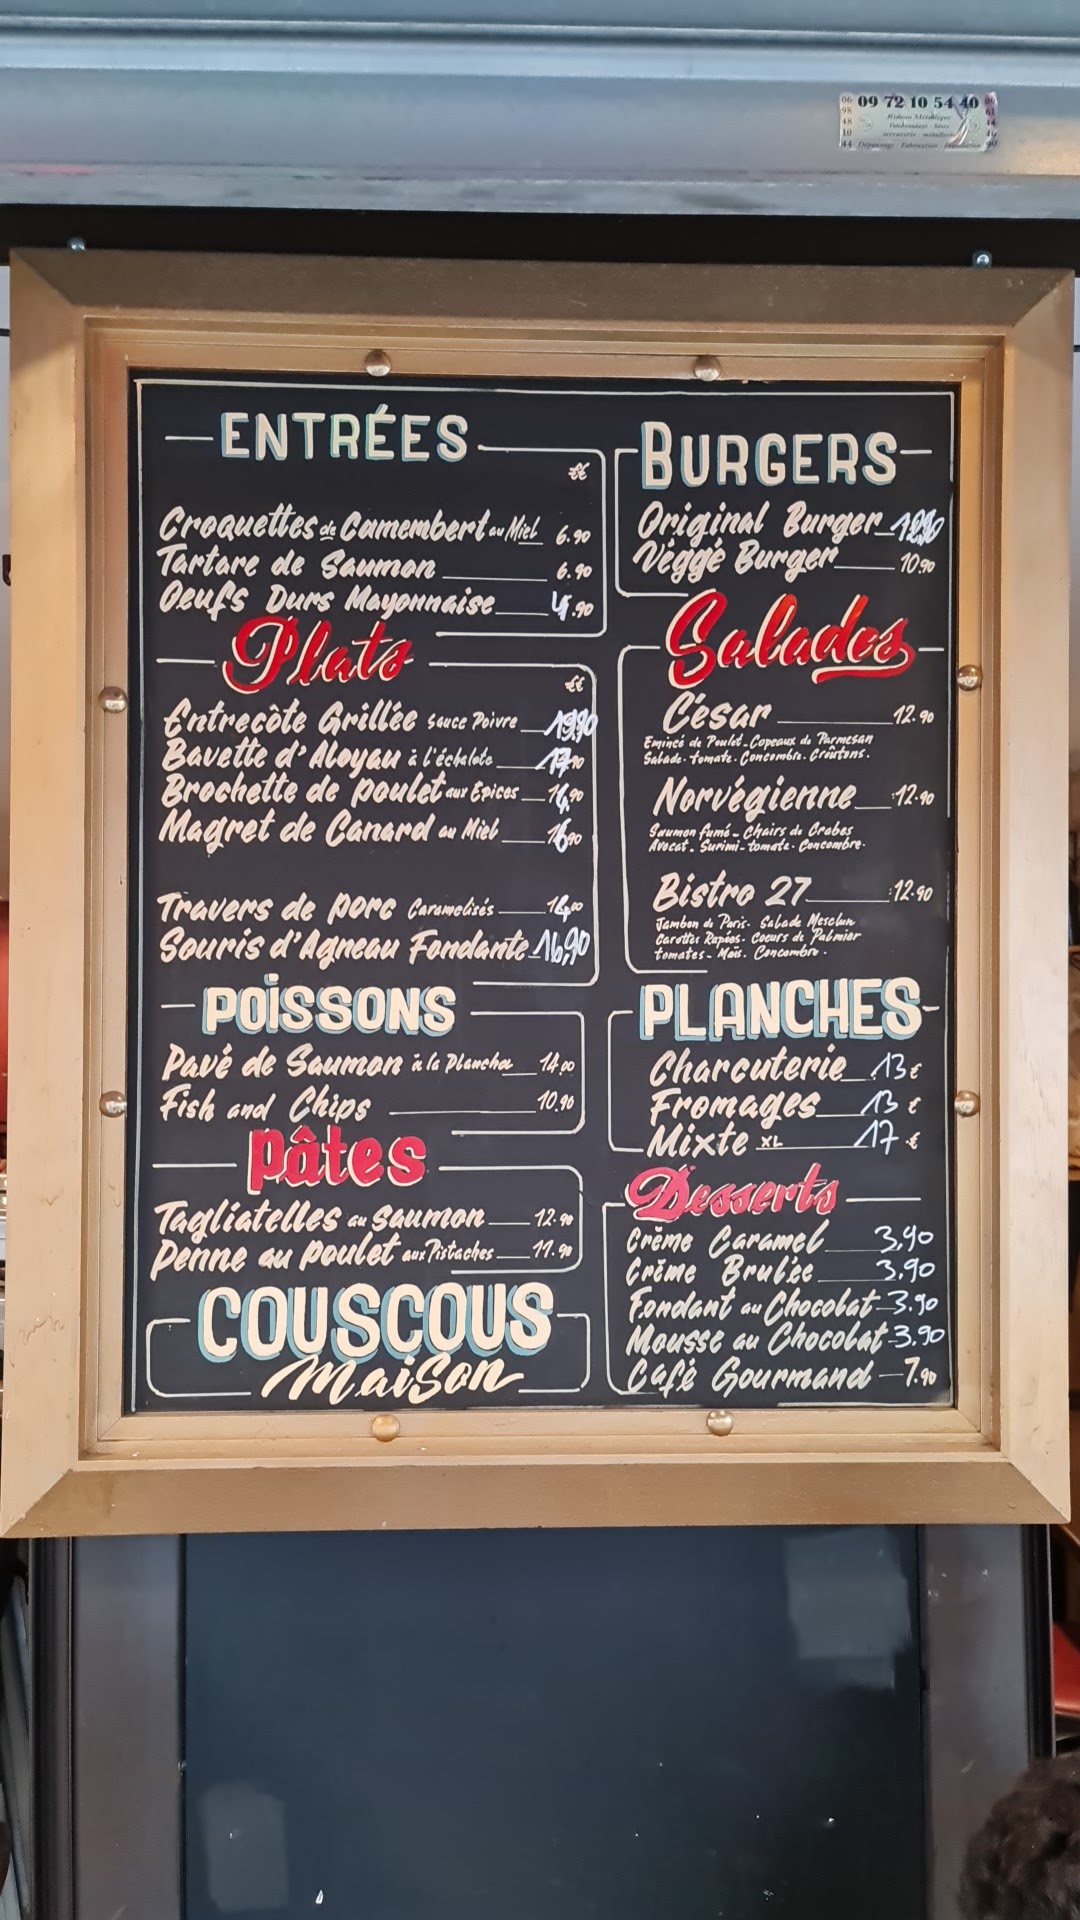 09 72 10 54 40
Rideau Métallique
Dépannage Fabrication Installation
ENTRÉES
€€
Croquettes de Camembert au Miel 6.90
Tartare de Saumon 6.90
Oeufs Durs Mayonnaise 4.90
Plats
€€
Entrecôte Grillée sauce Poivre 19,90
Bavette d'Aloyau à l'échalote 17.90
Brochette de poulet aux Epices 14,90
Magret de Canard au Miel 16,90
Travers de porc Caramelisés
Souris d'Agneau Fondante 16,90
POISSONS
Pavé de Saumon à la Plancha 14.00
Fish and Chips 10.90
Pâtes
Tagliatelles au saumon 12.90
Penne au poulet aux Pistaches 11.90
COUSCOUS
Maison
BURGERS
Original Burger
Véggé Burger 10.90
Salades
César 12.90
Emincé de Poulet - Copeaux de Parmesan
Salade - tomate - Concombre - Croûtons.
Norvégienne 12.90
Saumon fumé - Chairs de Crabes
Avocat - Surimi - tomate - Concombre.
Bistro 27 12.90
Jambon de Paris - Salade Mesclun
Carottes Rapées - Coeurs de Palmier
tomates - Maïs. Concombre.
PLANCHES
Charcuterie 13 €
Fromages 13 €
Mixte XL 17 €
Desserts
Crème Caramel 3.90
Crème Brulée 3.90
Fondant au Chocolat 3.90
Mousse au Chocolat 3.90
Café Gourmand 7.90